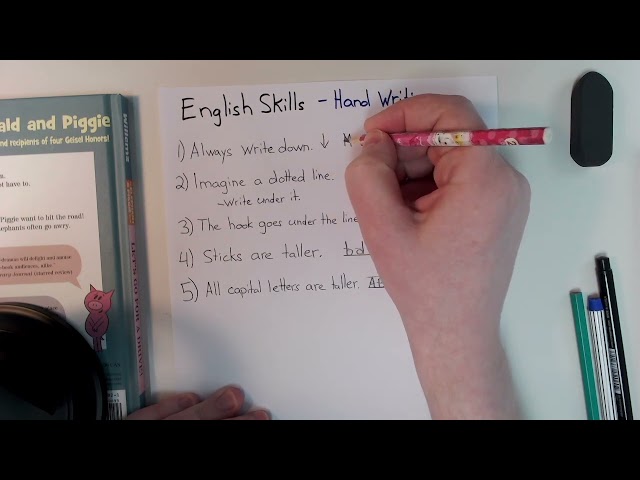 English Skills - Hand Writi
1) Always write down. ↓
2) Imagine a dotted line.
-Write under it.
3) The hook goes under the line
4) Sticks are taller. bd
5) All capital letters are taller. At
ald and Piggie
nd recipients of four Geisel Honors!
ot have to.
Piggie want to hit the road!
lephants often go awry.
Willems
LET'S GO FOR A DRIVE!